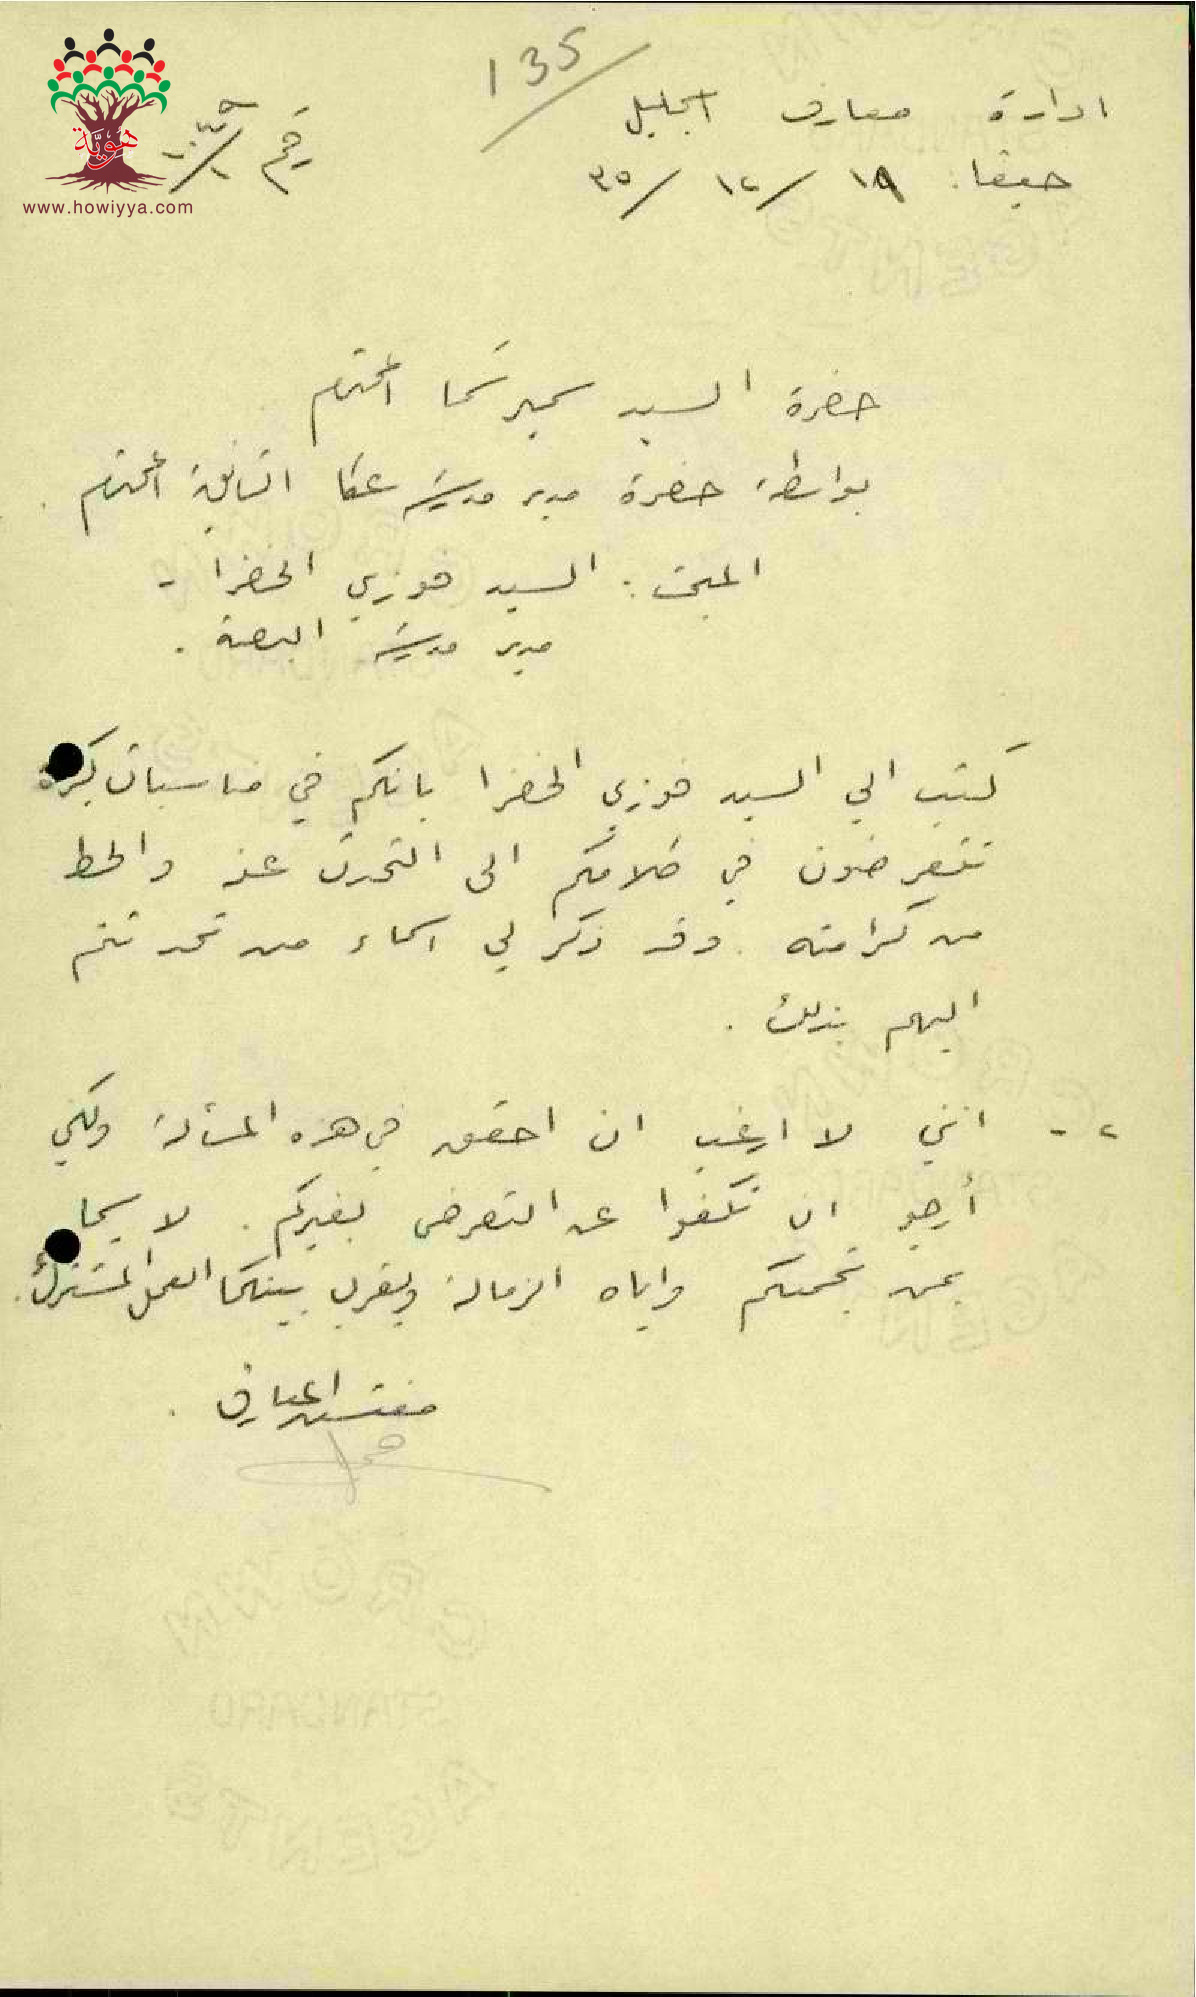 135
ادارة معارف الجليل
حيفا: ١٨/١٢/٣٥
رقم
هويّة
www.howiyya.com
حضرة السيد سمير شما المحترم
بواسطة حضرة مدير مدرسة عكا الثانوية المحترم
المبحث: السيد فوزي الخضرا -
مدير مدرسة البصة.
كتب الي السيد فوزي الخضرا بانكم في مناسبات كثيرة
تتعرضون في كلامكم الى التحدث عنه والحط
من كرامته. وقد ذكر لي اسماء من تحدثتم
اليهم بذلك.
٢- انني لا ارغب ان احقق في هذه المسألة ولكني
أرجو ان تكفوا عن التعرض لغيركم. لا سيما
بمن تجمعكم واياه الزمالة ويقرب بينكما العمل المشترك.
مفتش المعارف.